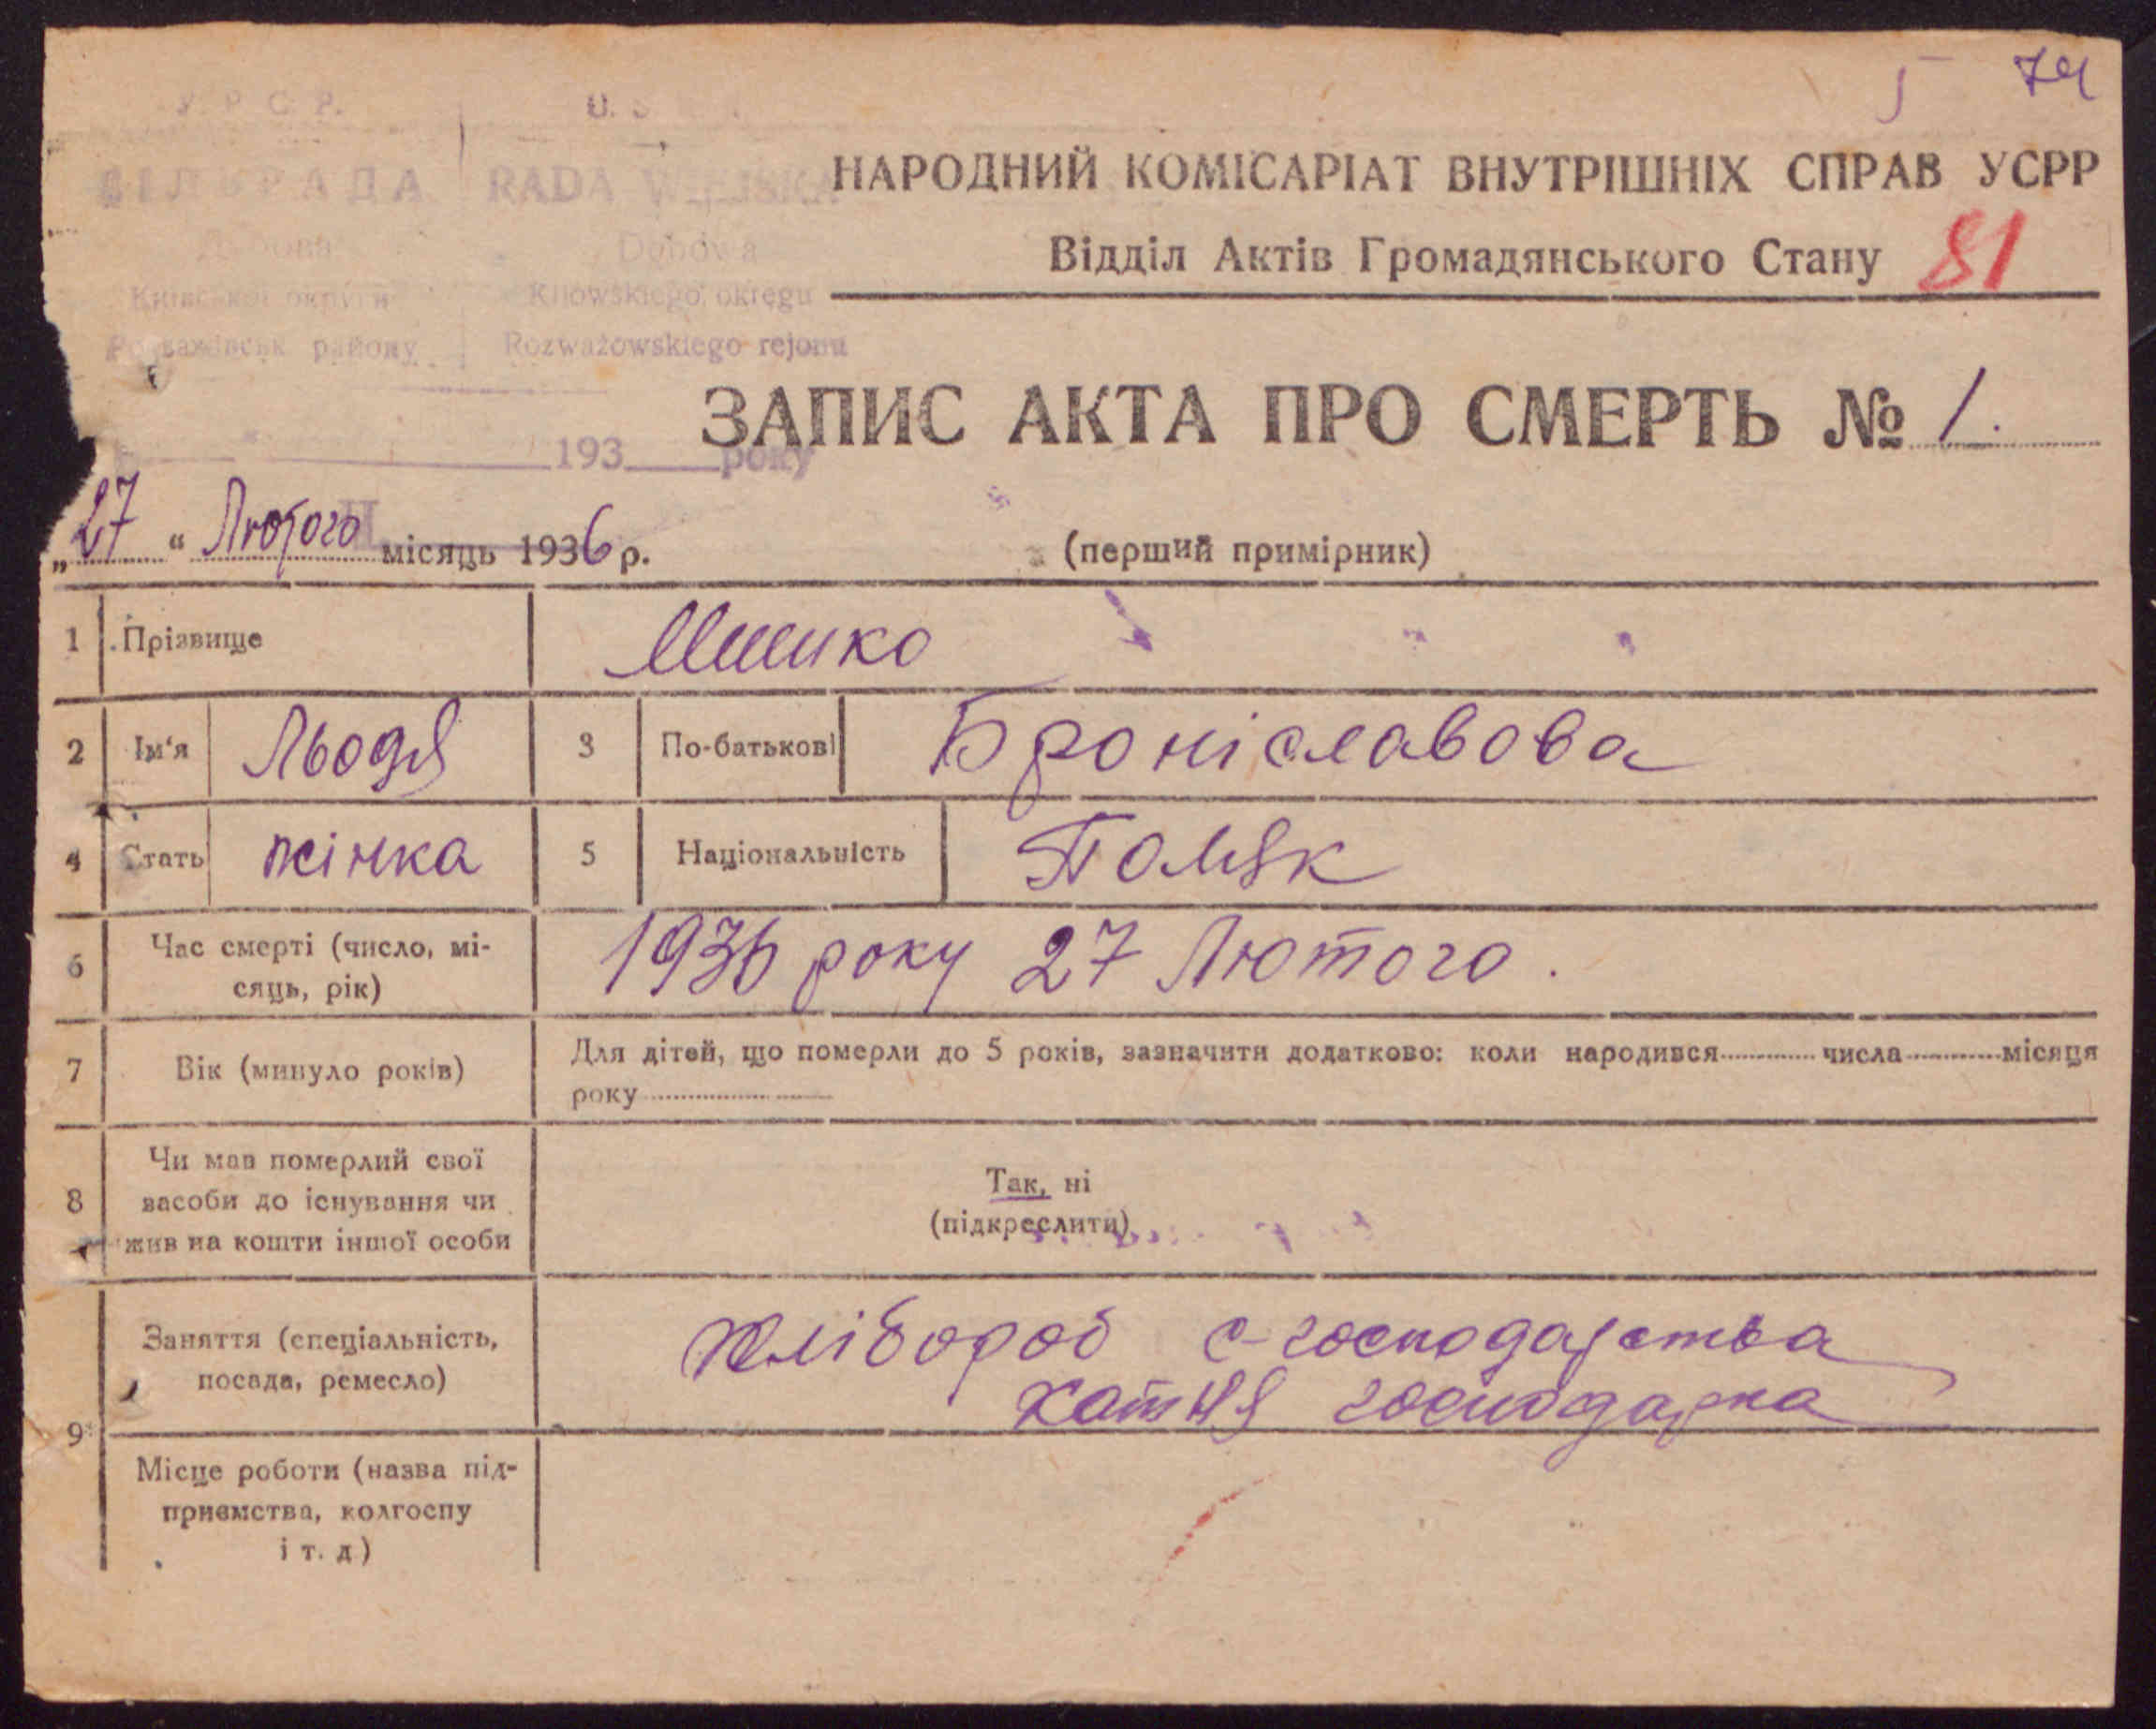 74
У. Р. С. Р.
СІЛЬРАДА RADA WIEJSKA
НАРОДНИЙ КОМІСАРІАТ ВНУТРІШНІХ СПРАВ УСРР
Відділ Актів Громадянського Стану 81
Київської округи Kijowskiego okręgu
району Rozważowskiego rejonu
ЗАПИС АКТА ПРО СМЕРТЬ № 1.
193 року
„27“ Лютого місяць 1936 р.
(перший примірник)
1 Прізвище
2 Ім'я Льодя 3 По-батькові Броніславова
4 Стать жінка 5 Національність Поляк
6 Час смерті (число, мі-
сяць, рік) 1936 року 27 Лютого.
7 Вік (минуло років) Для дітей, що померли до 5 років, зазначити додатково: коли народився числа місяця
року
8 Чи мав померлий свої
засоби до існування чи
жив на кошти іншої особи
Так, ні
(підкреслити)
9 Заняття (спеціальність,
посада, ремесло)
хлібороб с-господарства
хатня господарка
Місце роботи (назва під-
приємства, колгоспу
і т. д)